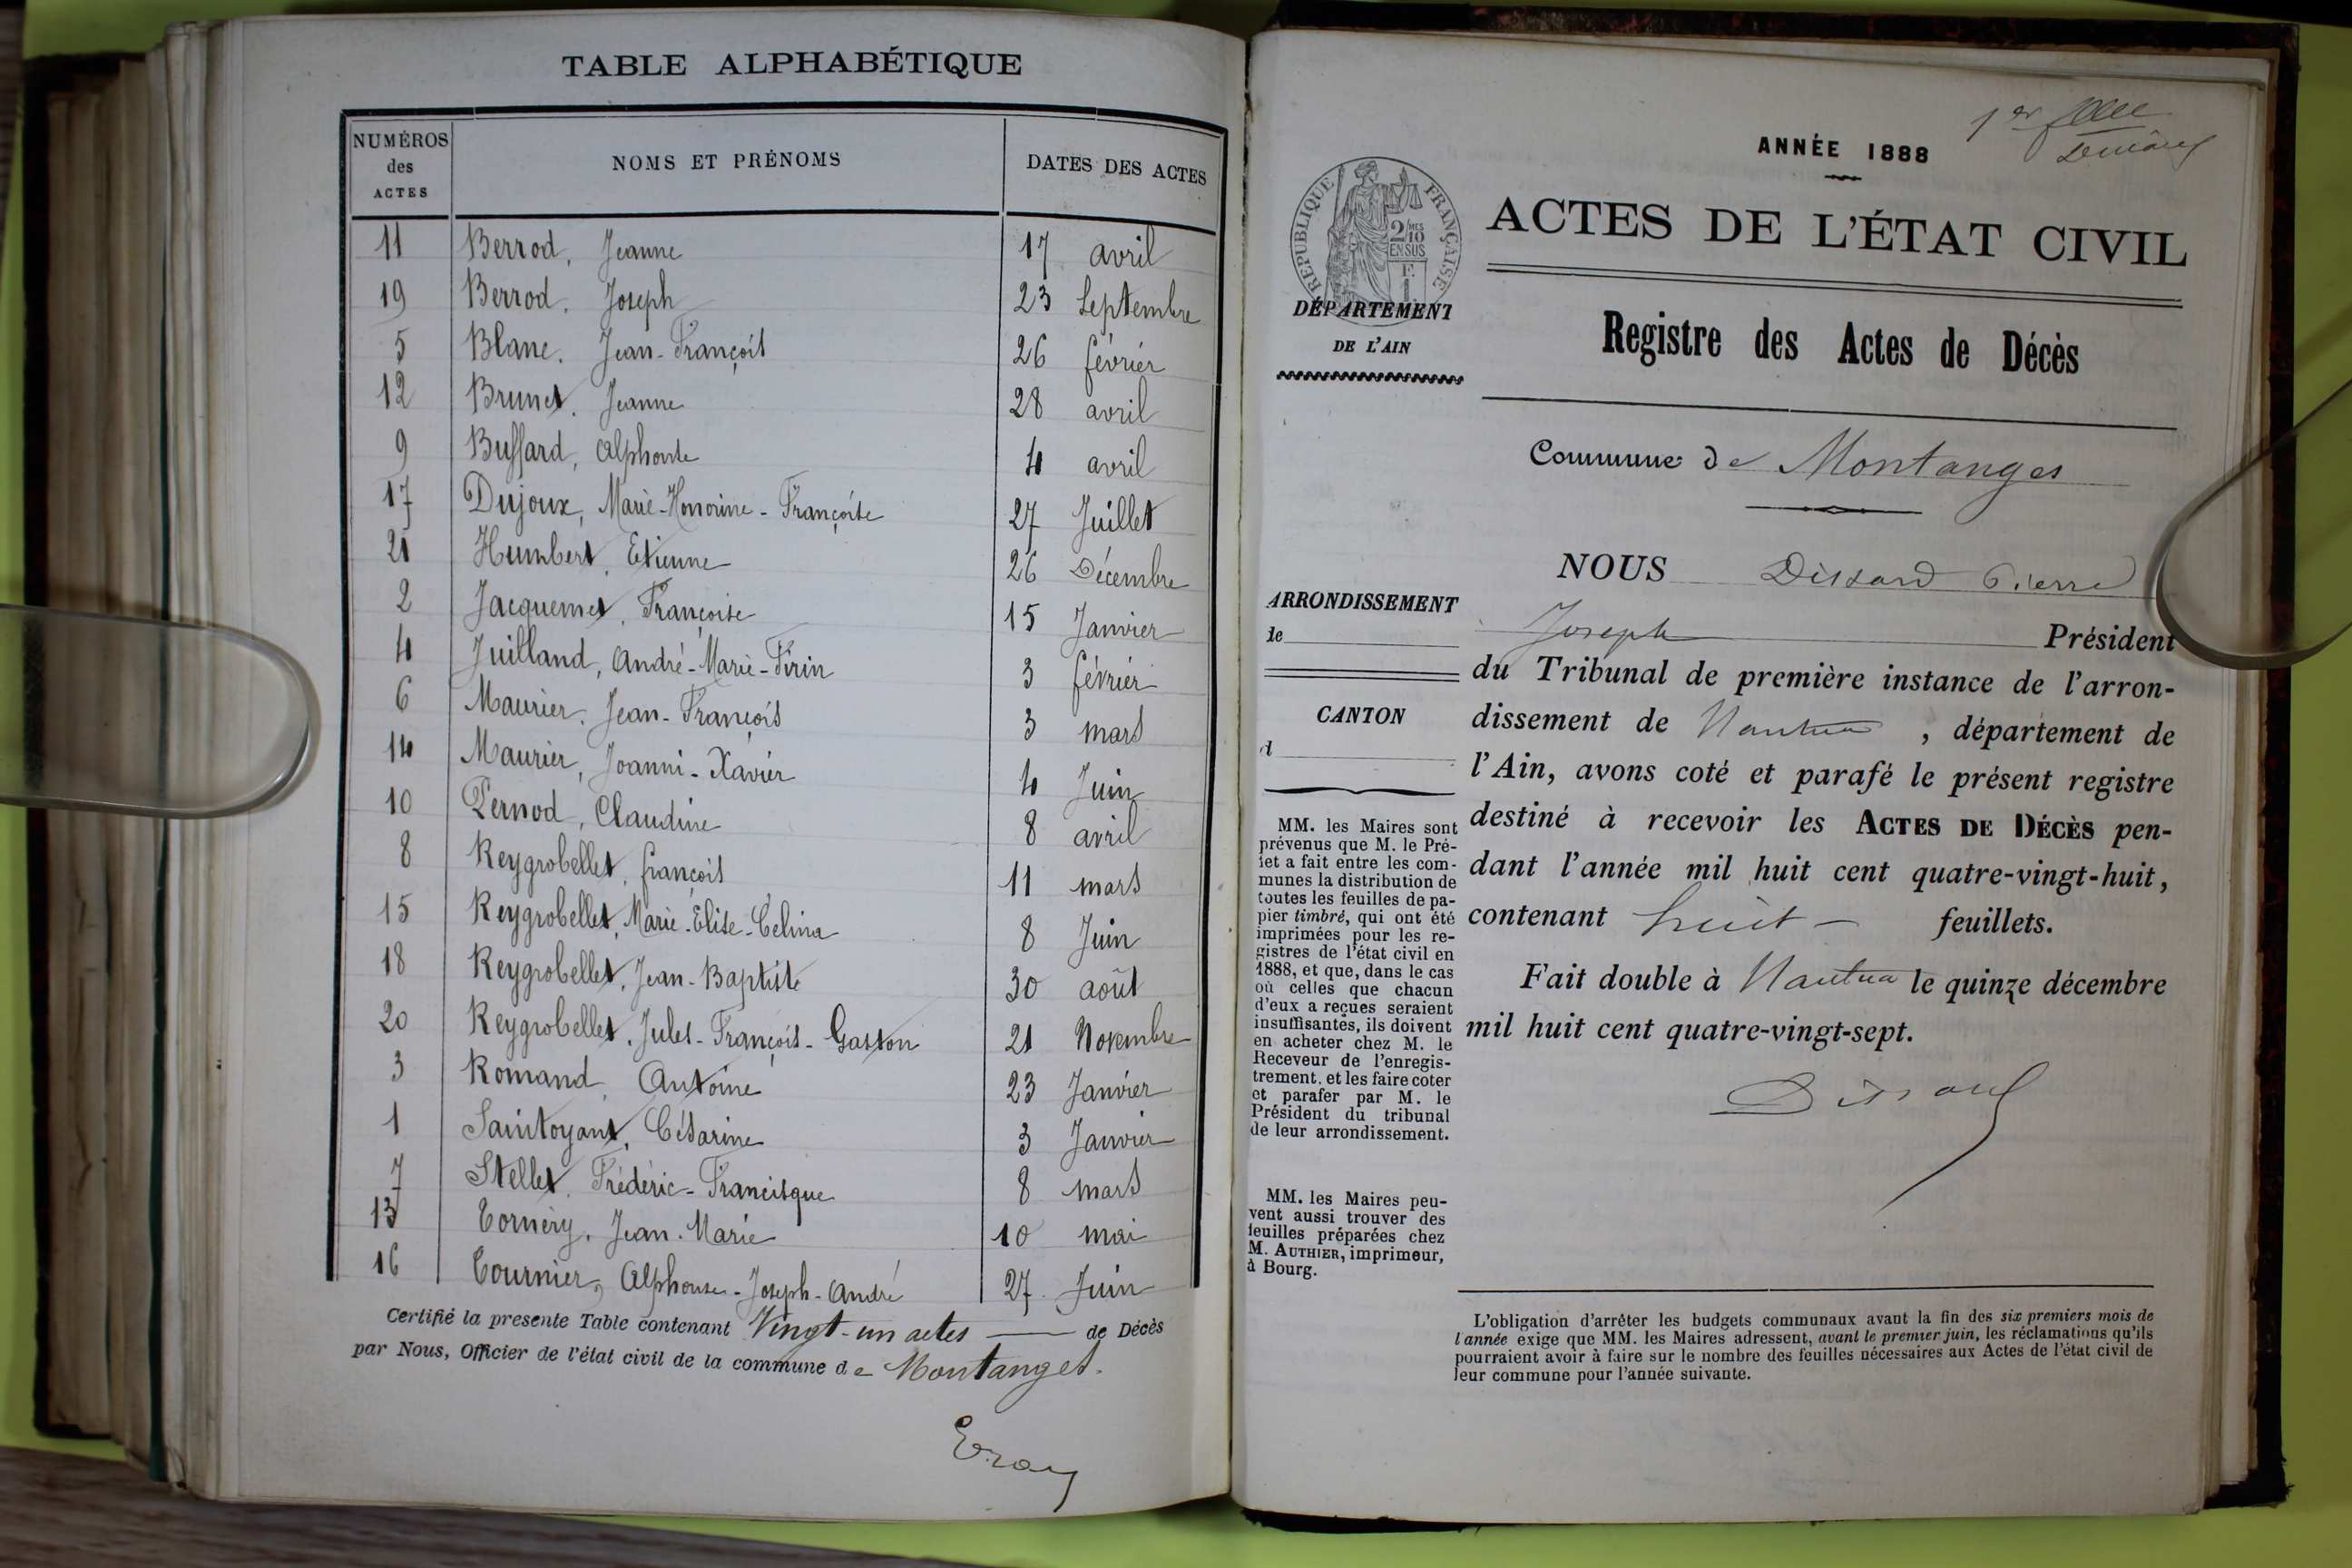 TABLE ALPHABÉTIQUE
NUMÉROS des ACTES | NOMS ET PRÉNOMS | DATES DES ACTES
11 Berrod, Jeanne 17 avril
19 Berrod, Joseph 23 Septembre
5 Blanc, Jean-François 26 février
12 Brunet, Jeanne 28 avril
9 Buffard, Alphonse 4 avril
17 Dujoux, Marie-Honorine-Françoise 27 Juillet
21 Humbert, Etienne 26 Décembre
2 Jacquemet, Françoise 15 Janvier
4 Juilland, André-Marie-Firin 3 février
6 Maurier, Jean-François 3 mars
14 Maurier, Joanni-Xavier 4 Juin
10 Pernod, Claudine 8 avril
8 Reygrobellet, françois 11 mars
15 Reygrobellet, Marie-Elise-Célina 8 Juin
18 Reygrobellet, Jean-Baptiste 30 août
20 Reygrobellet, Jules-François-Gaston 21 Novembre
3 Romand, Antoine 23 Janvier
1 Saintoyant, Césarine 3 Janvier
7 Stellet, Frédéric-Francisque 8 mars
13 Tornéry, Jean-Marie 10 mai
16 Tournier, Alphonse-Joseph-André 27 Juin
Certifié la presente Table contenant Vingt-un actes de Décès
par Nous, Officier de l'état civil de la commune de Montanges.
1er
ANNÉE 1888
RÉPUBLIQUE FRANÇAISE
2/10MES
EN SUS
ACTES DE L'ÉTAT CIVIL
DÉPARTEMENT
DE L'AIN
Registre des Actes de Décès
Commune de Montanges
NOUS Dissard Pierre
Joseph Président
du Tribunal de première instance de l'arron-
dissement de Nantua, département de
l'Ain, avons coté et parafé le présent registre
destiné à recevoir les ACTES DE DÉCÈS pen-
dant l'année mil huit cent quatre-vingt-huit,
contenant huit feuillets.
Fait double à Nantua le quinze décembre
mil huit cent quatre-vingt-sept.
Dissard
ARRONDISSEMENT
de
CANTON
d
MM. les Maires sont
prévenus que M. le Pré-
fet a fait entre les com-
munes la distribution de
toutes les feuilles de pa-
pier timbré, qui ont été
imprimées pour les re-
gistres de l'état civil en
1888, et que, dans le cas
où celles que chacun
d'eux a reçues seraient
insuffisantes, ils doivent
en acheter chez M. le
Receveur de l'enregis-
trement, et les faire coter
et parafer par M. le
Président du tribunal
de leur arrondissement.
MM. les Maires peu-
vent aussi trouver des
feuilles préparées chez
M. AUTHIER, imprimeur,
à Bourg.
L'obligation d'arrêter les budgets communaux avant la fin des six premiers mois de
l'année exige que MM. les Maires adressent, avant le premier juin, les réclamations qu'ils
pourraient avoir à faire sur le nombre des feuilles nécessaires aux Actes de l'état civil de
leur commune pour l'année suivante.